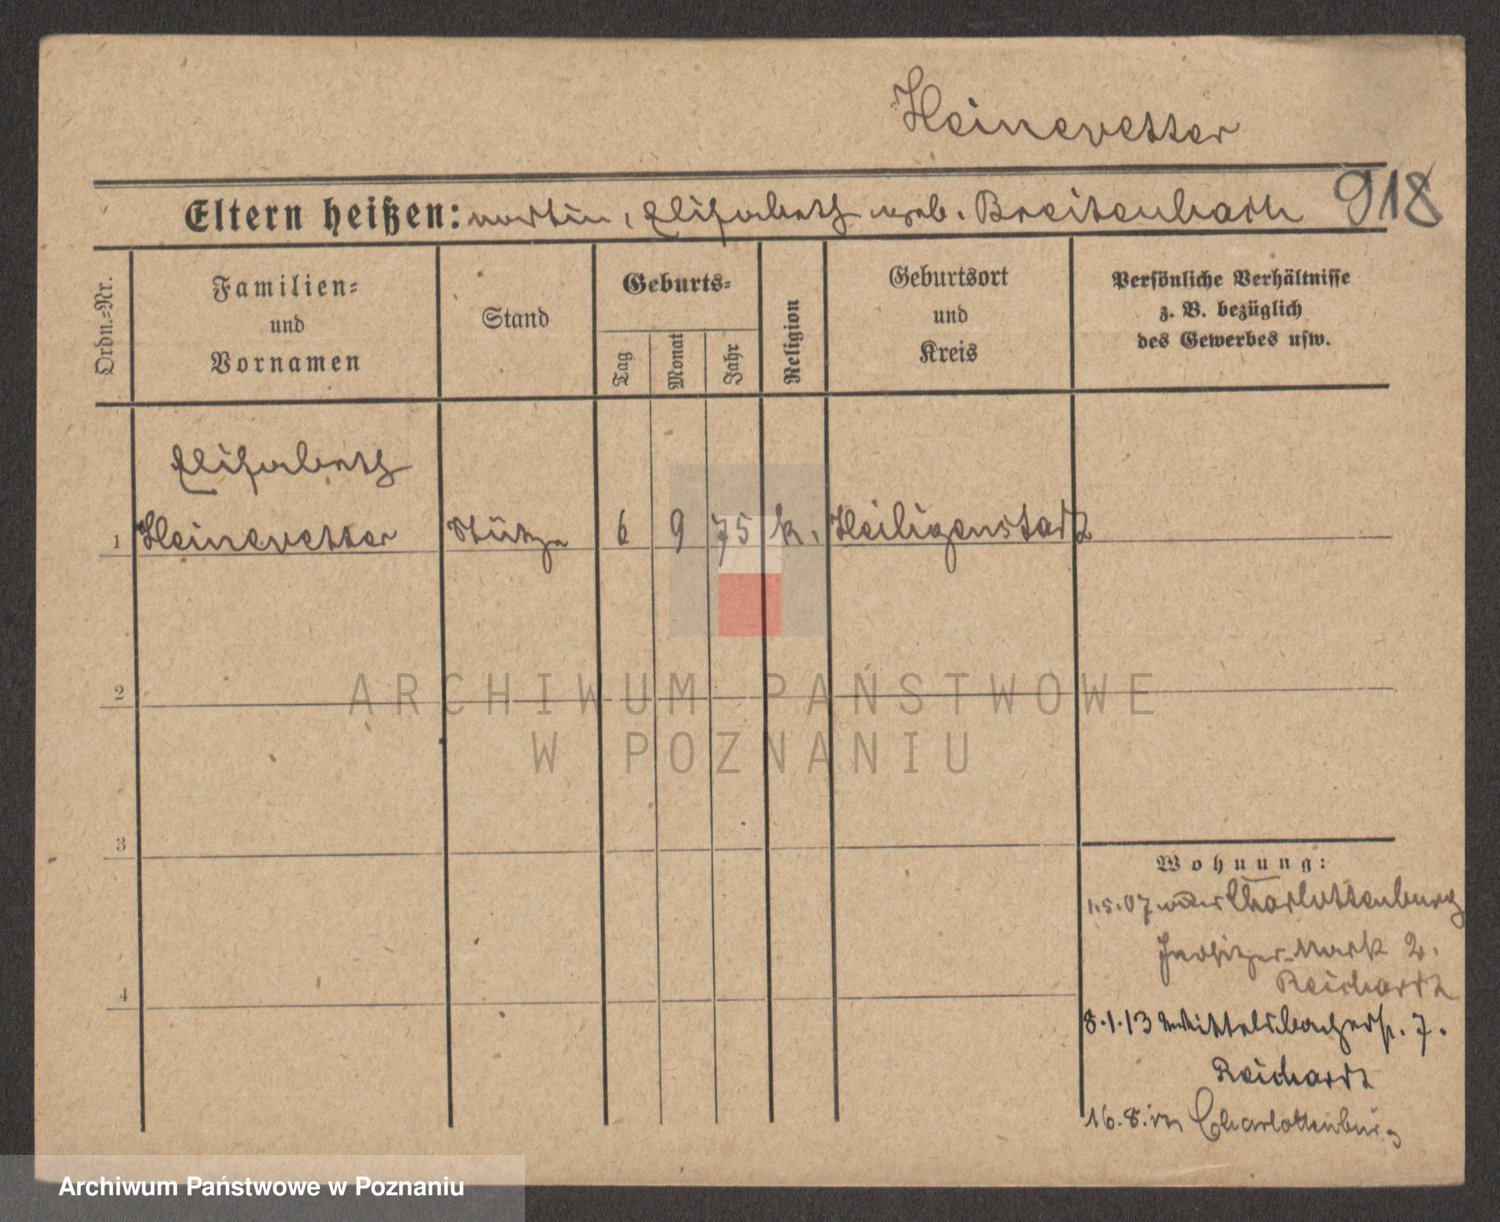 Heinevetter
918
Eltern heißen: Martin, Elisabeth geb. Breitenbach
Ordn.-Nr.
Familien-
und
Vornamen
Stand
Geburts-
Tag
Monat
Jahr
Religion
Geburtsort
und
Kreis
Persönliche Verhältnisse
z. B. bezüglich
des Gewerbes usw.
Elisabeth
1 Heinevetter Stütze 6 9 75 k. Heiligenstadt
2
3
4
Wohnung:
1.5.07 Charlottenburg
Mark 2.
Reichardt
8.1.13 Wittelsbacherstr. 7.
Reichardt
16.8. in Charlottenburg
ARCHIWUM PAŃSTWOWE
W POZNANIU
Archiwum Państwowe w Poznaniu